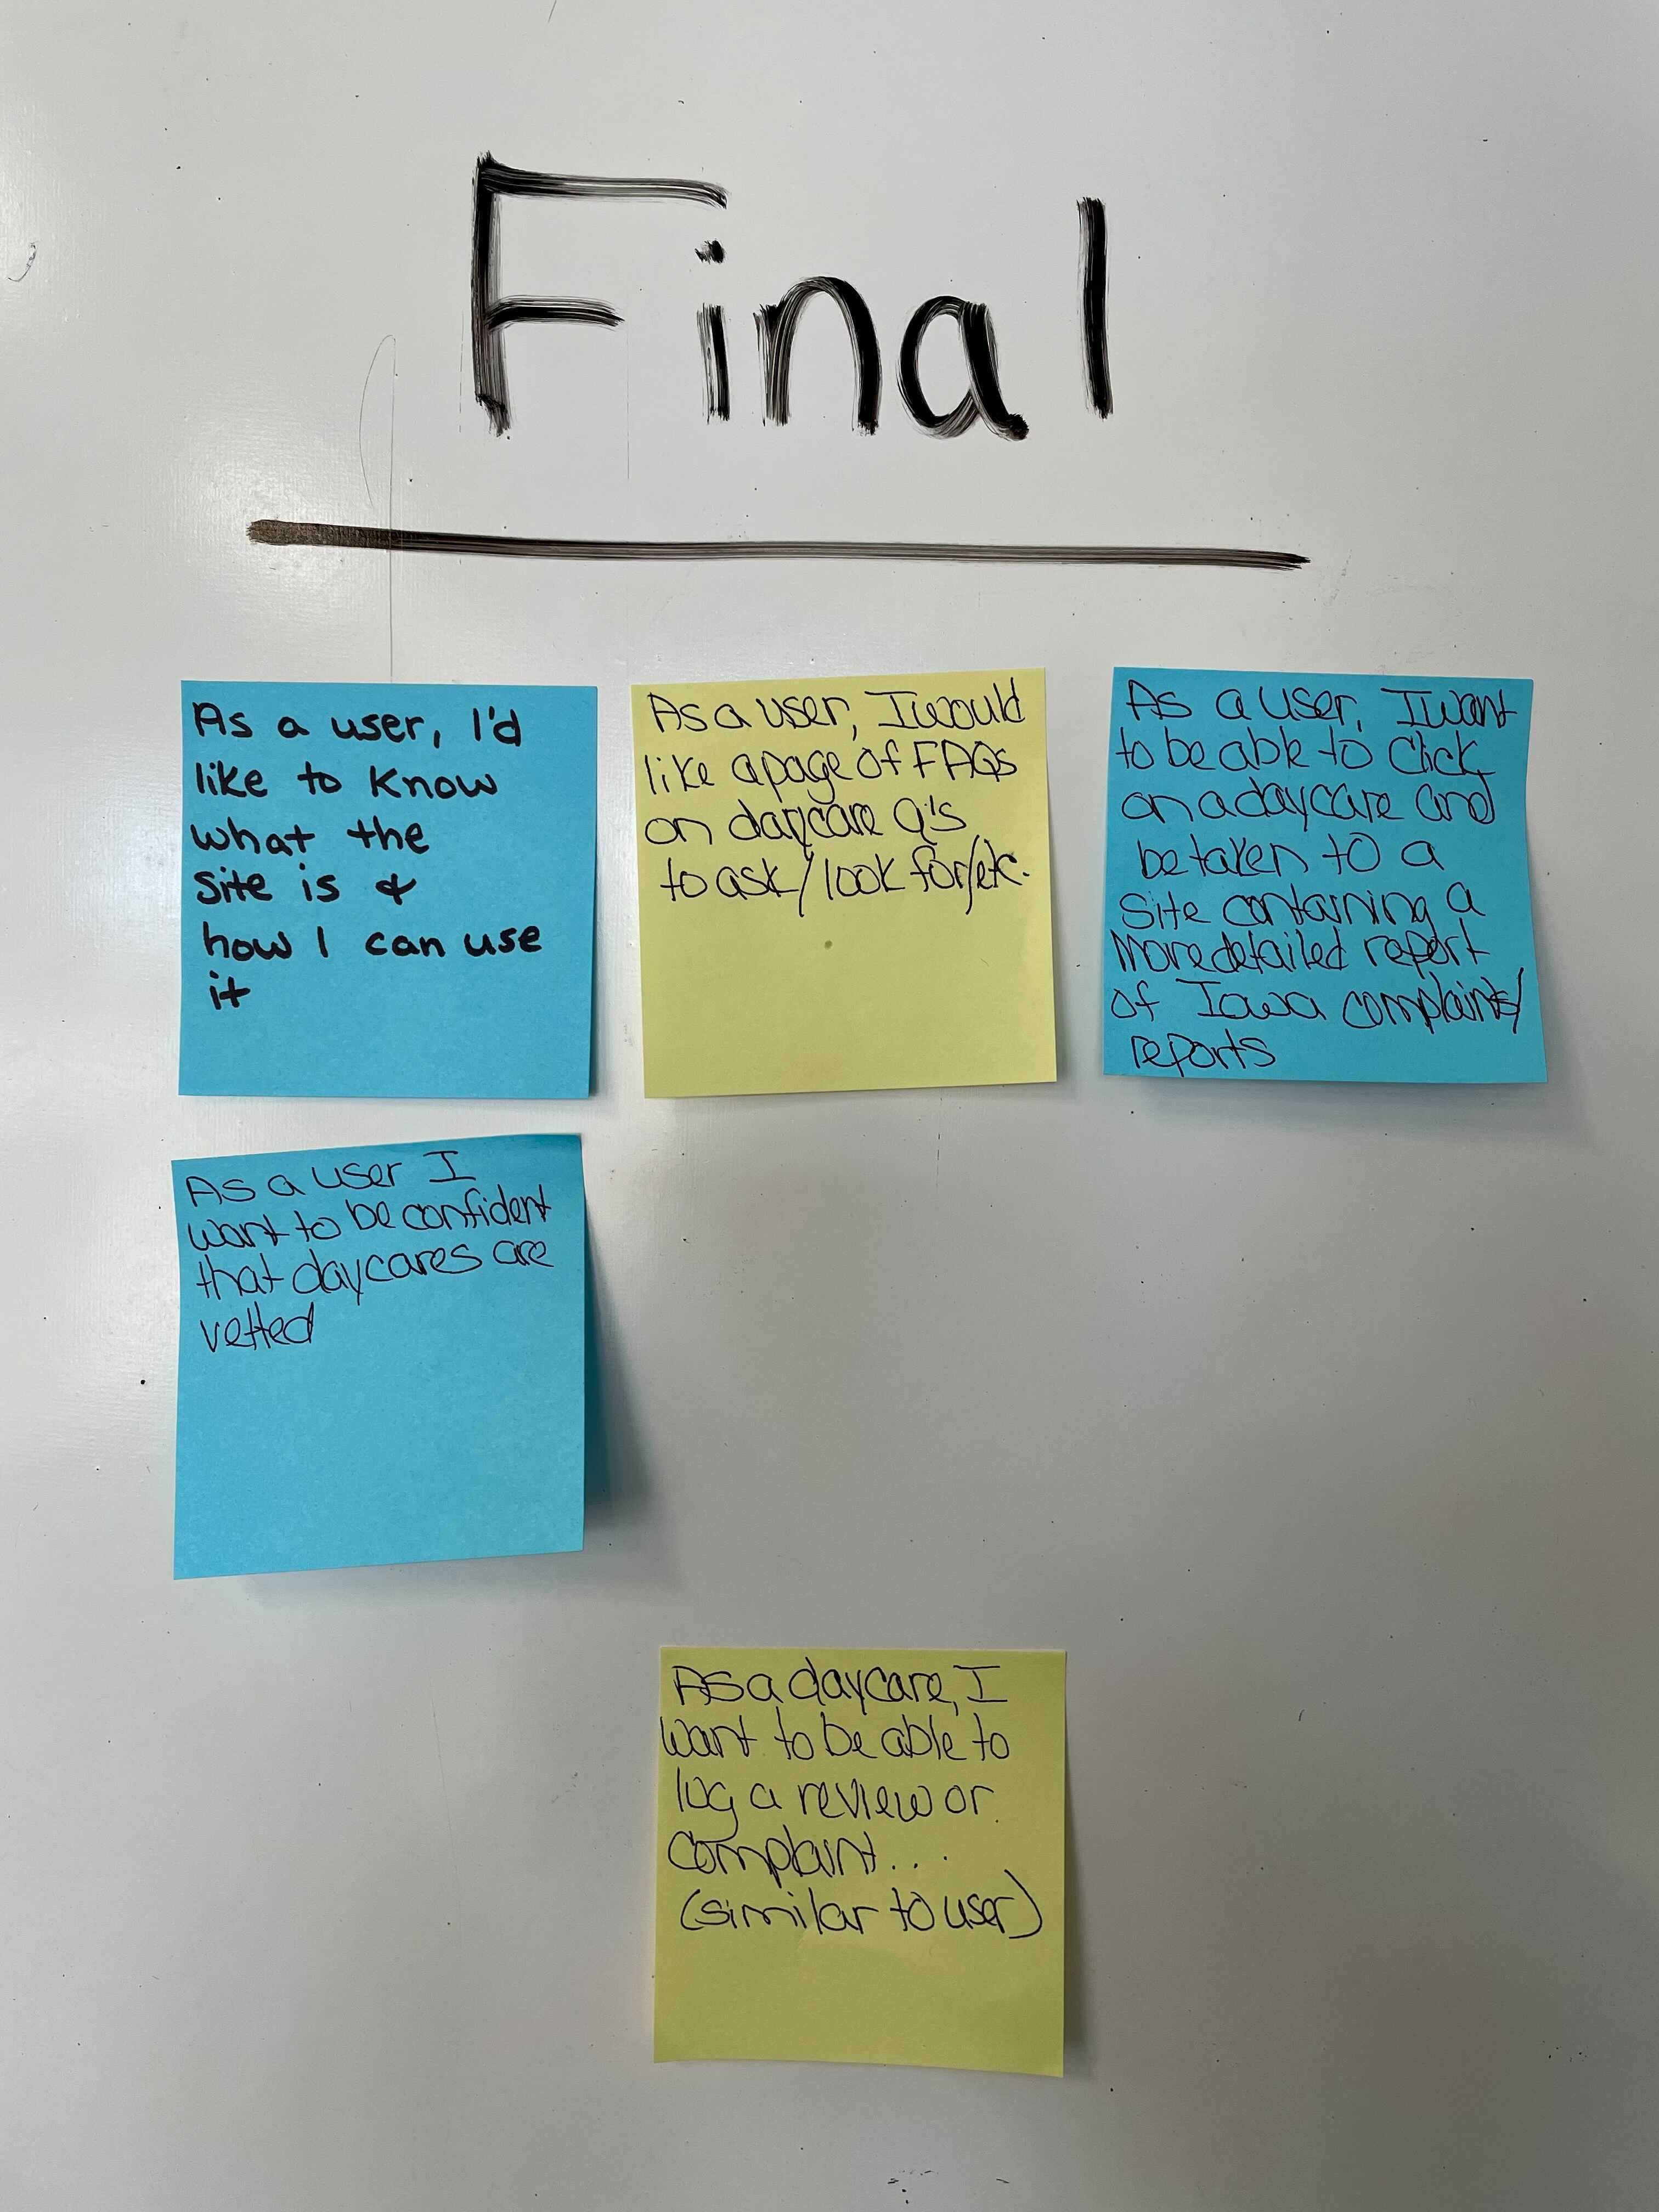 Final
As a user, I'd
like to know
what the
site is &
how I can use
it
As a user, I would
like a page of FAQs
on daycare Q's
to ask/look for/etc.
As a user, I want
to be able to click
on a daycare and
be taken to a
site containing a
more detailed report
of Iowa complaints/
reports
As a user I
want to be confident
that daycares are
vetted
As a daycare, I
want to be able to
log a review or
complaint...
(similar to user)